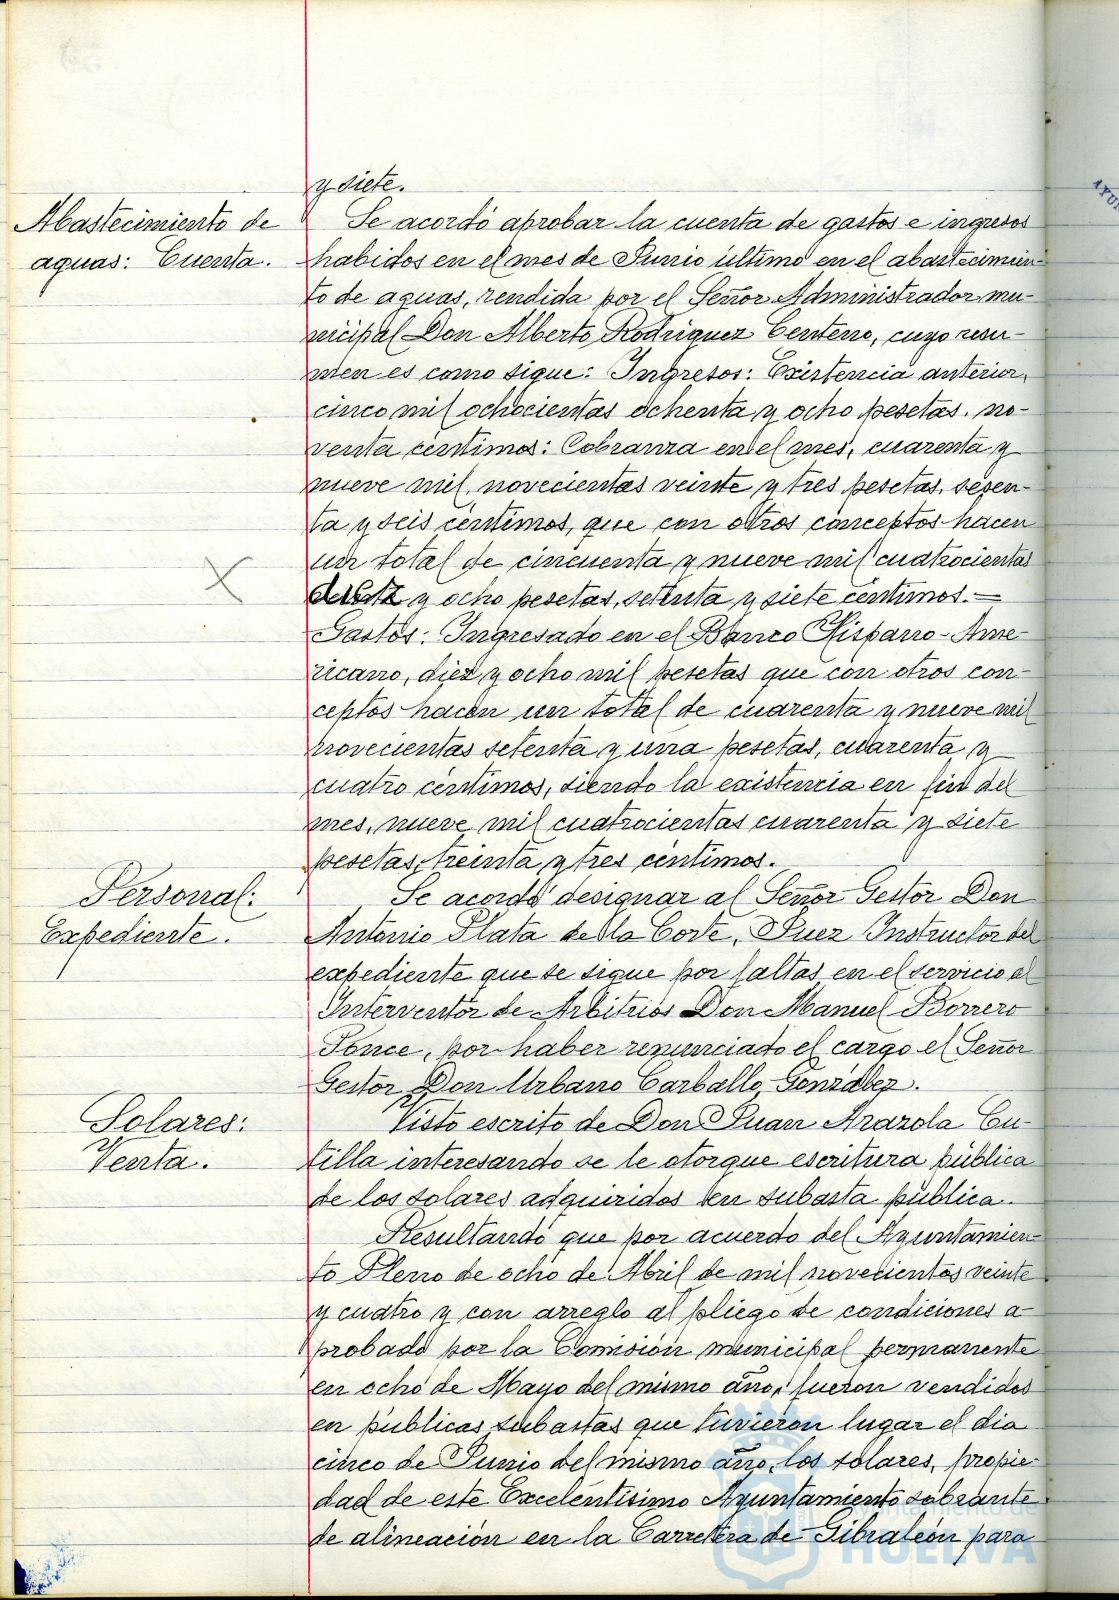 y siete.
Abastecimiento de
aguas: Cuenta.
Se acordó aprobar la cuenta de gastos e ingresos
habidos en el mes de Junio último en el abastecimien-
to de aguas, rendida por el Señor Administrador mu-
nicipal Don Alberto Rodríguez Centeno, cuyo resu-
men es como sigue: Ingresos: Existencia anterior,
cinco mil ochocientas ochenta y ocho pesetas, no-
venta céntimos: Cobranza en el mes, cuarenta y
nueve mil novecientas veinte y tres pesetas, sesen-
ta y seis céntimos, que con otros conceptos hacen
un total de cincuenta y nueve mil cuatrocientas
y ocho pesetas, setenta y siete céntimos.=
Gastos: Ingresado en el Banco Hispano-Ame-
ricano, diez y ocho mil pesetas que con otros con-
ceptos hacen un total de cuarenta y nueve mil
novecientas setenta y una pesetas, cuarenta y
cuatro céntimos, siendo la existencia en fin del
mes, nueve mil cuatrocientas cuarenta y siete
pesetas, treinta y tres céntimos.
Personal:
Expediente.
Se acordó designar al Señor Gestor Don
Antonio Plata de la Corte, Juez Instructor del
expediente que se sigue por faltas en el servicio al
Interventor de Arbitrios Don Manuel Borrero
Ponce, por haber renunciado el cargo el Señor
Gestor Don Urbano Carballo González.
Solares:
Venta.
Visto escrito de Don Juan Arazola Cu-
tilla interesando se le otorgue escritura pública
de los solares adquiridos en subasta pública.
Resultando que por acuerdo del Ayuntamien-
to Pleno de ocho de Abril de mil novecientos veinte
y cuatro y con arreglo al pliego de condiciones a-
probado por la Comisión municipal permanente
en ocho de Mayo del mismo año, fueron vendidos
en públicas subastas que tuvieron lugar el dia
cinco de Junio del mismo año, los solares, propie-
dad de este Excelentísimo Ayuntamiento sobrante
de alineación en la Carretera de Gibraleón para
Ayuntamiento de
HUELVA